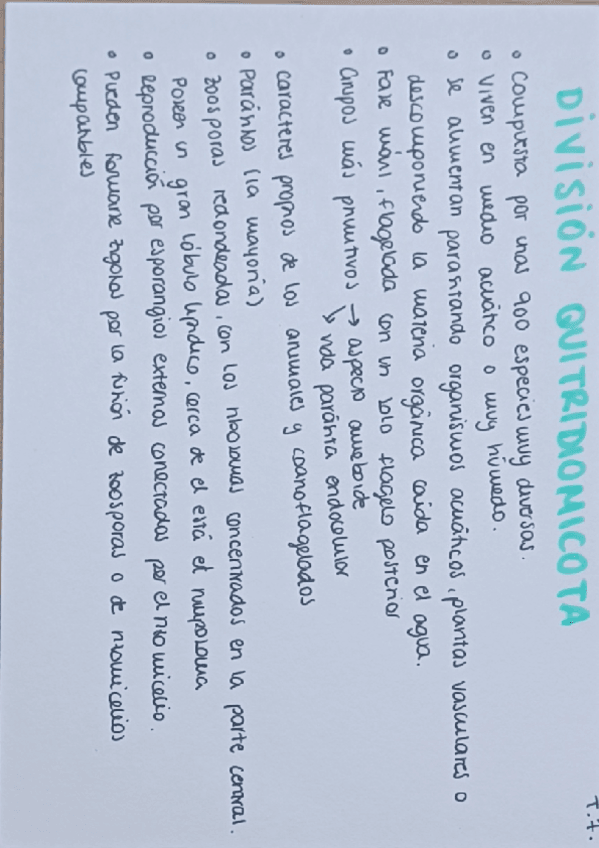 T.7.
DIVISIÓN QUITRIDIOMICOTA
• Compuesta por unas 900 especies muy diversas.
• Viven en medio acuático o muy húmedo.
• Se alimentan parasitando organismos acuáticos, plantas vasculares o
descomponiendo la materia orgánica caída en el agua.
• Fase móvil, flagelada con un solo flagelo posterior
• Grupos más primitivos → aspecto ameboide
↘ vida parásita endocelular
• caracteres propios de los animales y coanoflagelados
• Parásitos (la mayoría)
• zoosporas redondeadas, con los ribosomas concentrados en la parte central.
Poseen un gran lóbulo lipídico, cerca de el está el rumposoma
• Reproducción por esporangios externos conectadas por el rizomicelio.
• Pueden formarse zigotos por la fusión de zoosporas o de rizomicelios
compatibles